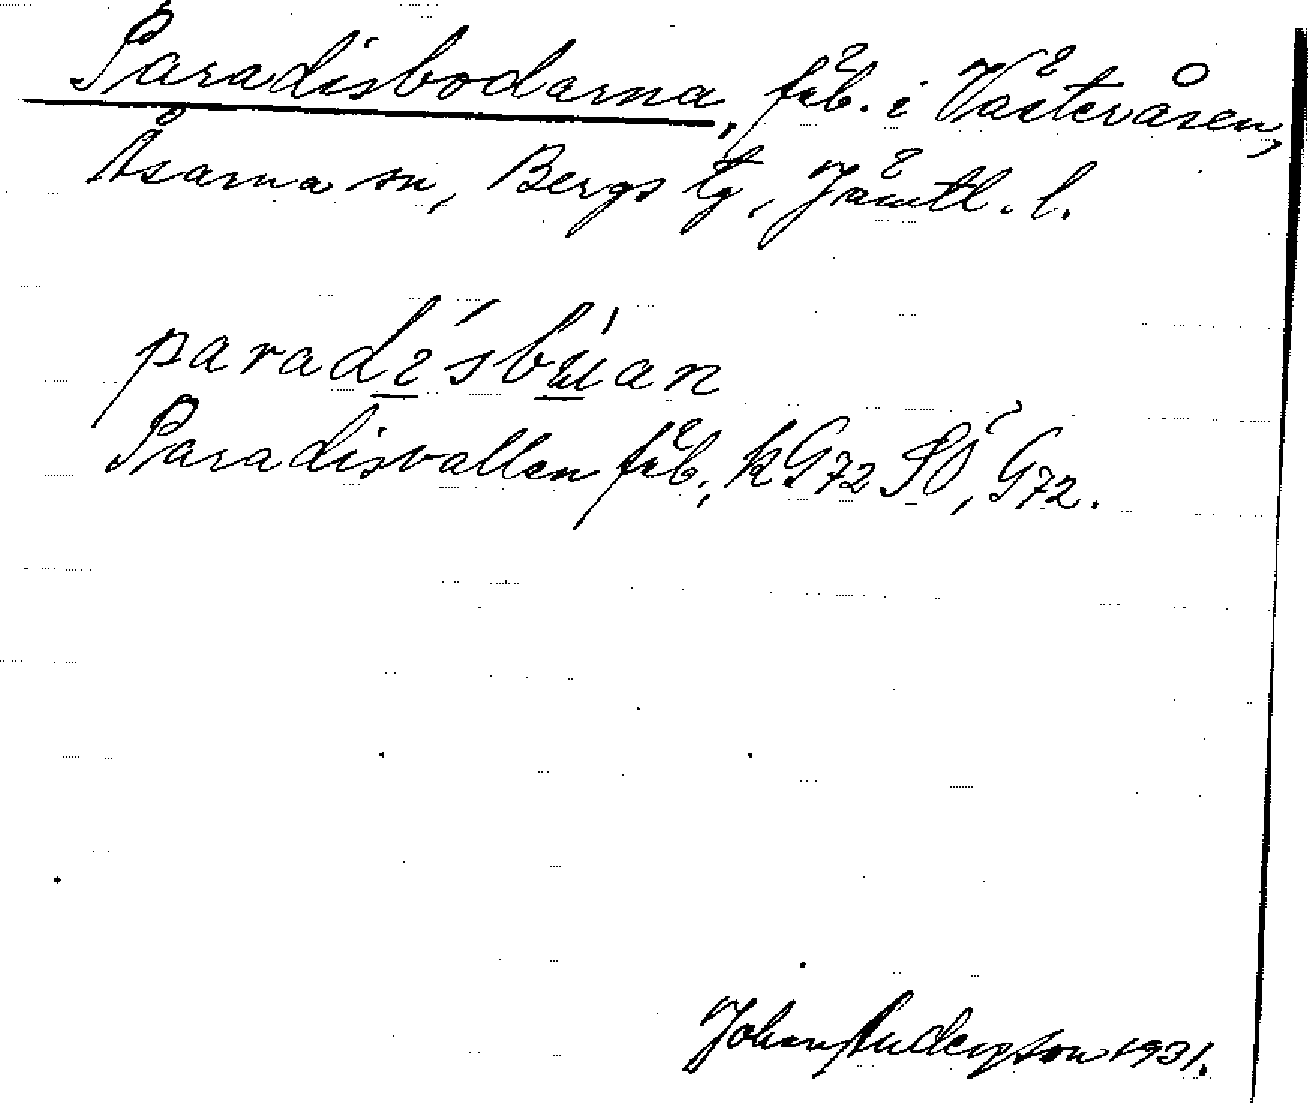 Paradisbodarna, fäb. i Västeråsen,
Åsarna sn, Bergs tg, Jämtl. l.
paradísbúan
Paradisvallen fäb, k G72 SÖ, G72.
Johan Anderson 1931.